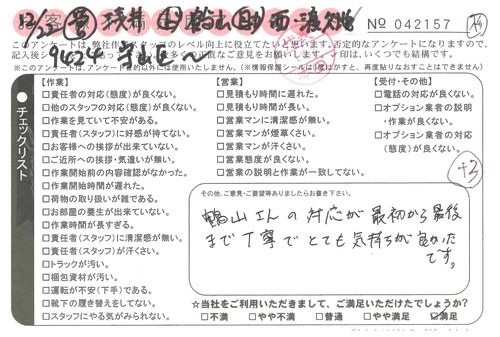 No 042157
このアンケートは、弊社作業スタッフのレベル向上に役立てたいと思います。否定的なアンケートになりますので、
※このアンケートは、アンケート目的以外には使用いたしません。(※情報保護シールは1度はがすと、再度貼りなおすことはできません)
チェックリスト
【作業】
□責任者の対応(態度)が良くない。
□他のスタッフの対応(態度)が良くない。
□作業を見ていて不安がある。
□責任者(スタッフ)に好感が持てない。
□お客様への挨拶が出来ていない。
□ご近所への挨拶・気遣いが無い。
□作業開始前の内容確認がなかった。
□作業開始時間が遅れた。
□荷物の取り扱いが雑である。
□お部屋の養生が出来ていない。
□作業時間が長すぎる。
□責任者(スタッフ)に清潔感が無い。
□責任者(スタッフ)が汗くさい。
□トラックが汚い。
□梱包資材が汚い。
□運転が不安(下手)である。
□靴下の履き替えをしてない。
□スタッフにやる気がみられない。
【営業】
□見積もり時間に遅れた。
□見積もり時間が長い。
□営業マンに清潔感が無い。
□営業マンが煙草くさい。
□営業マンが汗くさい。
□営業態度が良くない。
□営業の説明と作業が一致してない。
【受付・その他】
□電話の対応が良くない。
□オプション業者の説明
・作業が良くない。
□オプション業者の対応
(態度)が良くない。
+3
その他、ご意見・ご要望等ありましたらお書き下さい。
鶴山さんの対応が最初から最後
まで丁寧でとても気持ちが良かった
です。
☆当社をご利用いただきまして、ご満足いただけたでしょうか?
□不満 □やや不満 □普通 □やや満足 ☑満足